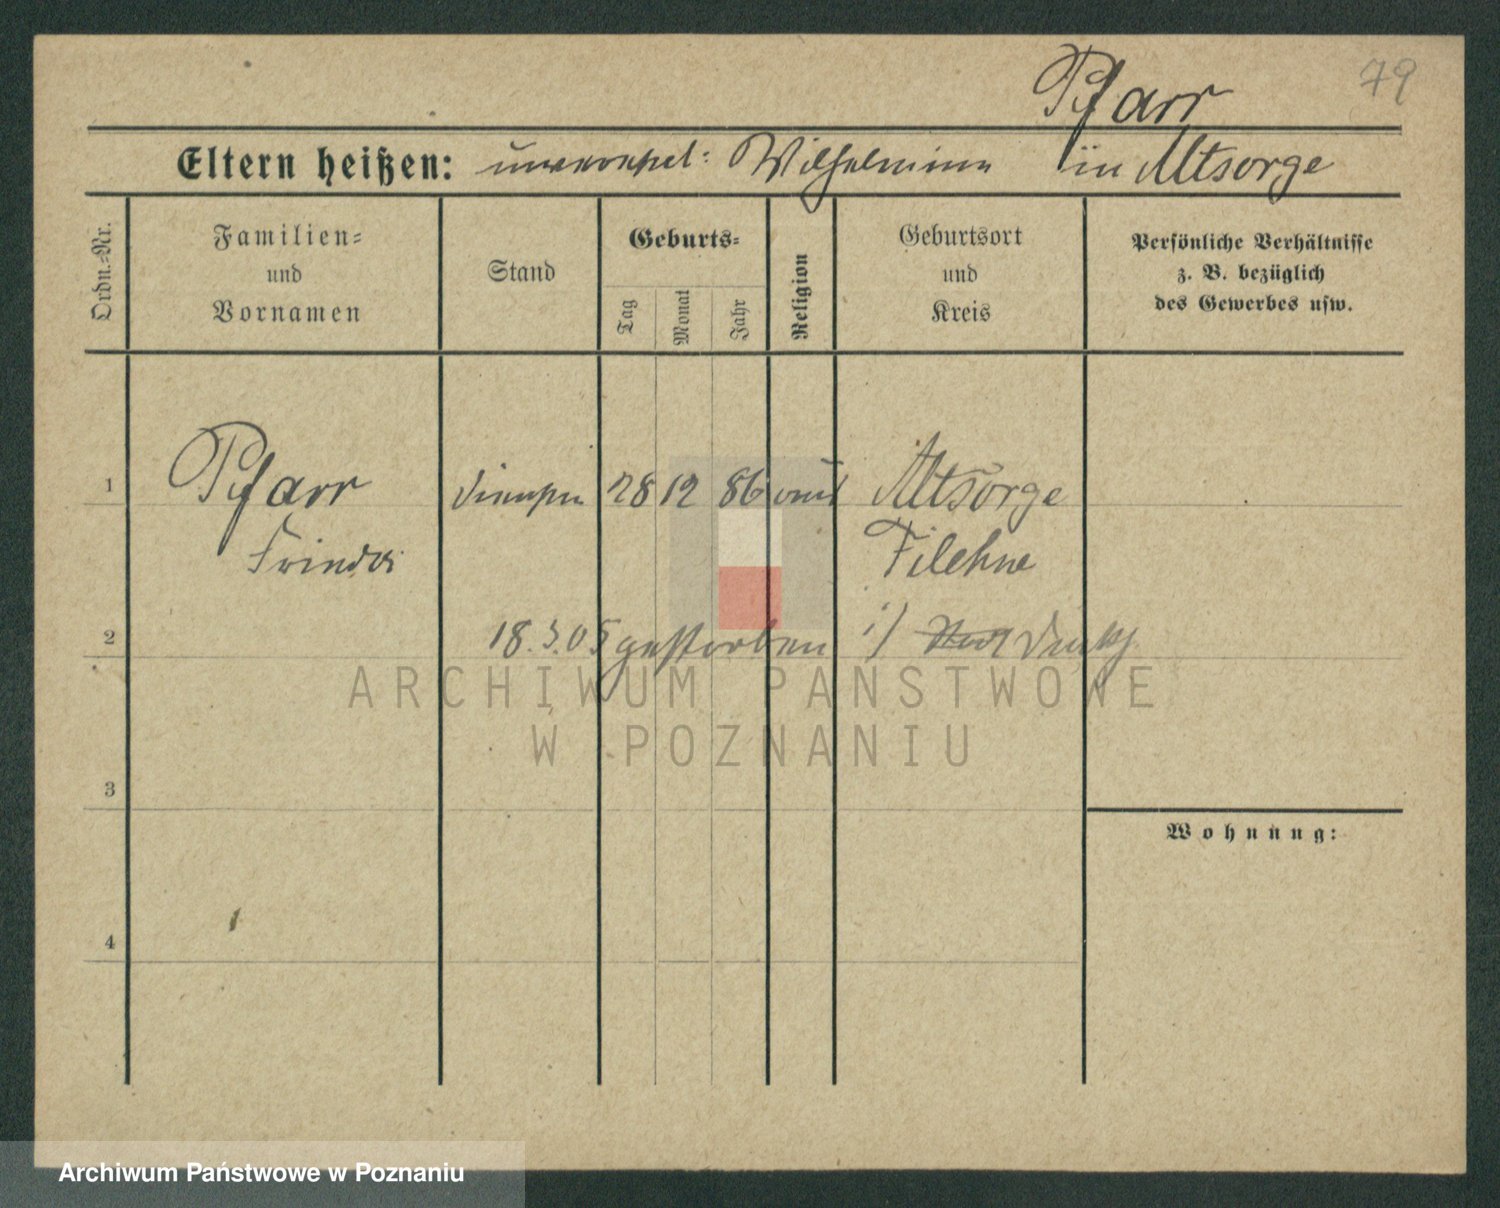 79
Pfarr
Eltern heißen: unverehel: Wilhelmine in Altsorge
Ordn.-Nr.
Familien-
und
Vornamen
Stand
Geburts-
Tag
Monat
Jahr
Religion
Geburtsort
und
Kreis
Persönliche Verhältnisse
z. B. bezüglich
des Gewerbes usw.
1 Pfarr 28 12 86 Altsorge
Frieda Filehne
2 18.3.05 gestorben
ARCHIWUM PAŃSTWOWE
W POZNANIU
3
Wohnung:
4
Archiwum Państwowe w Poznaniu